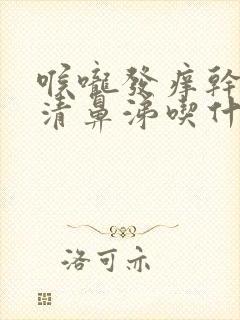 喉嚨發痒幹
清鼻涕喫什
洛可亦